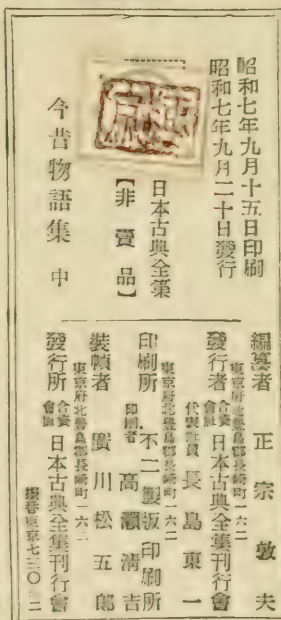 昭和七年九月十五日印刷
昭和七年九月二十日發行
日本古典全集
【非賣品】
今昔物語集 中
東京府北豊島郡長崎町一六二
編纂者 正宗敦夫
東京府北豊島郡長崎町一六二
發行者 合資會社 日本古典全集刊行會
代表社員 長島東一
東京府北豊島郡長崎町一六二
印刷所 不二製版印刷所
印刷者 高瀬清吉
裝幀者 廣川松五郎
東京府北豊島郡長崎町一六二
發行所 合資會社 日本古典全集刊行會